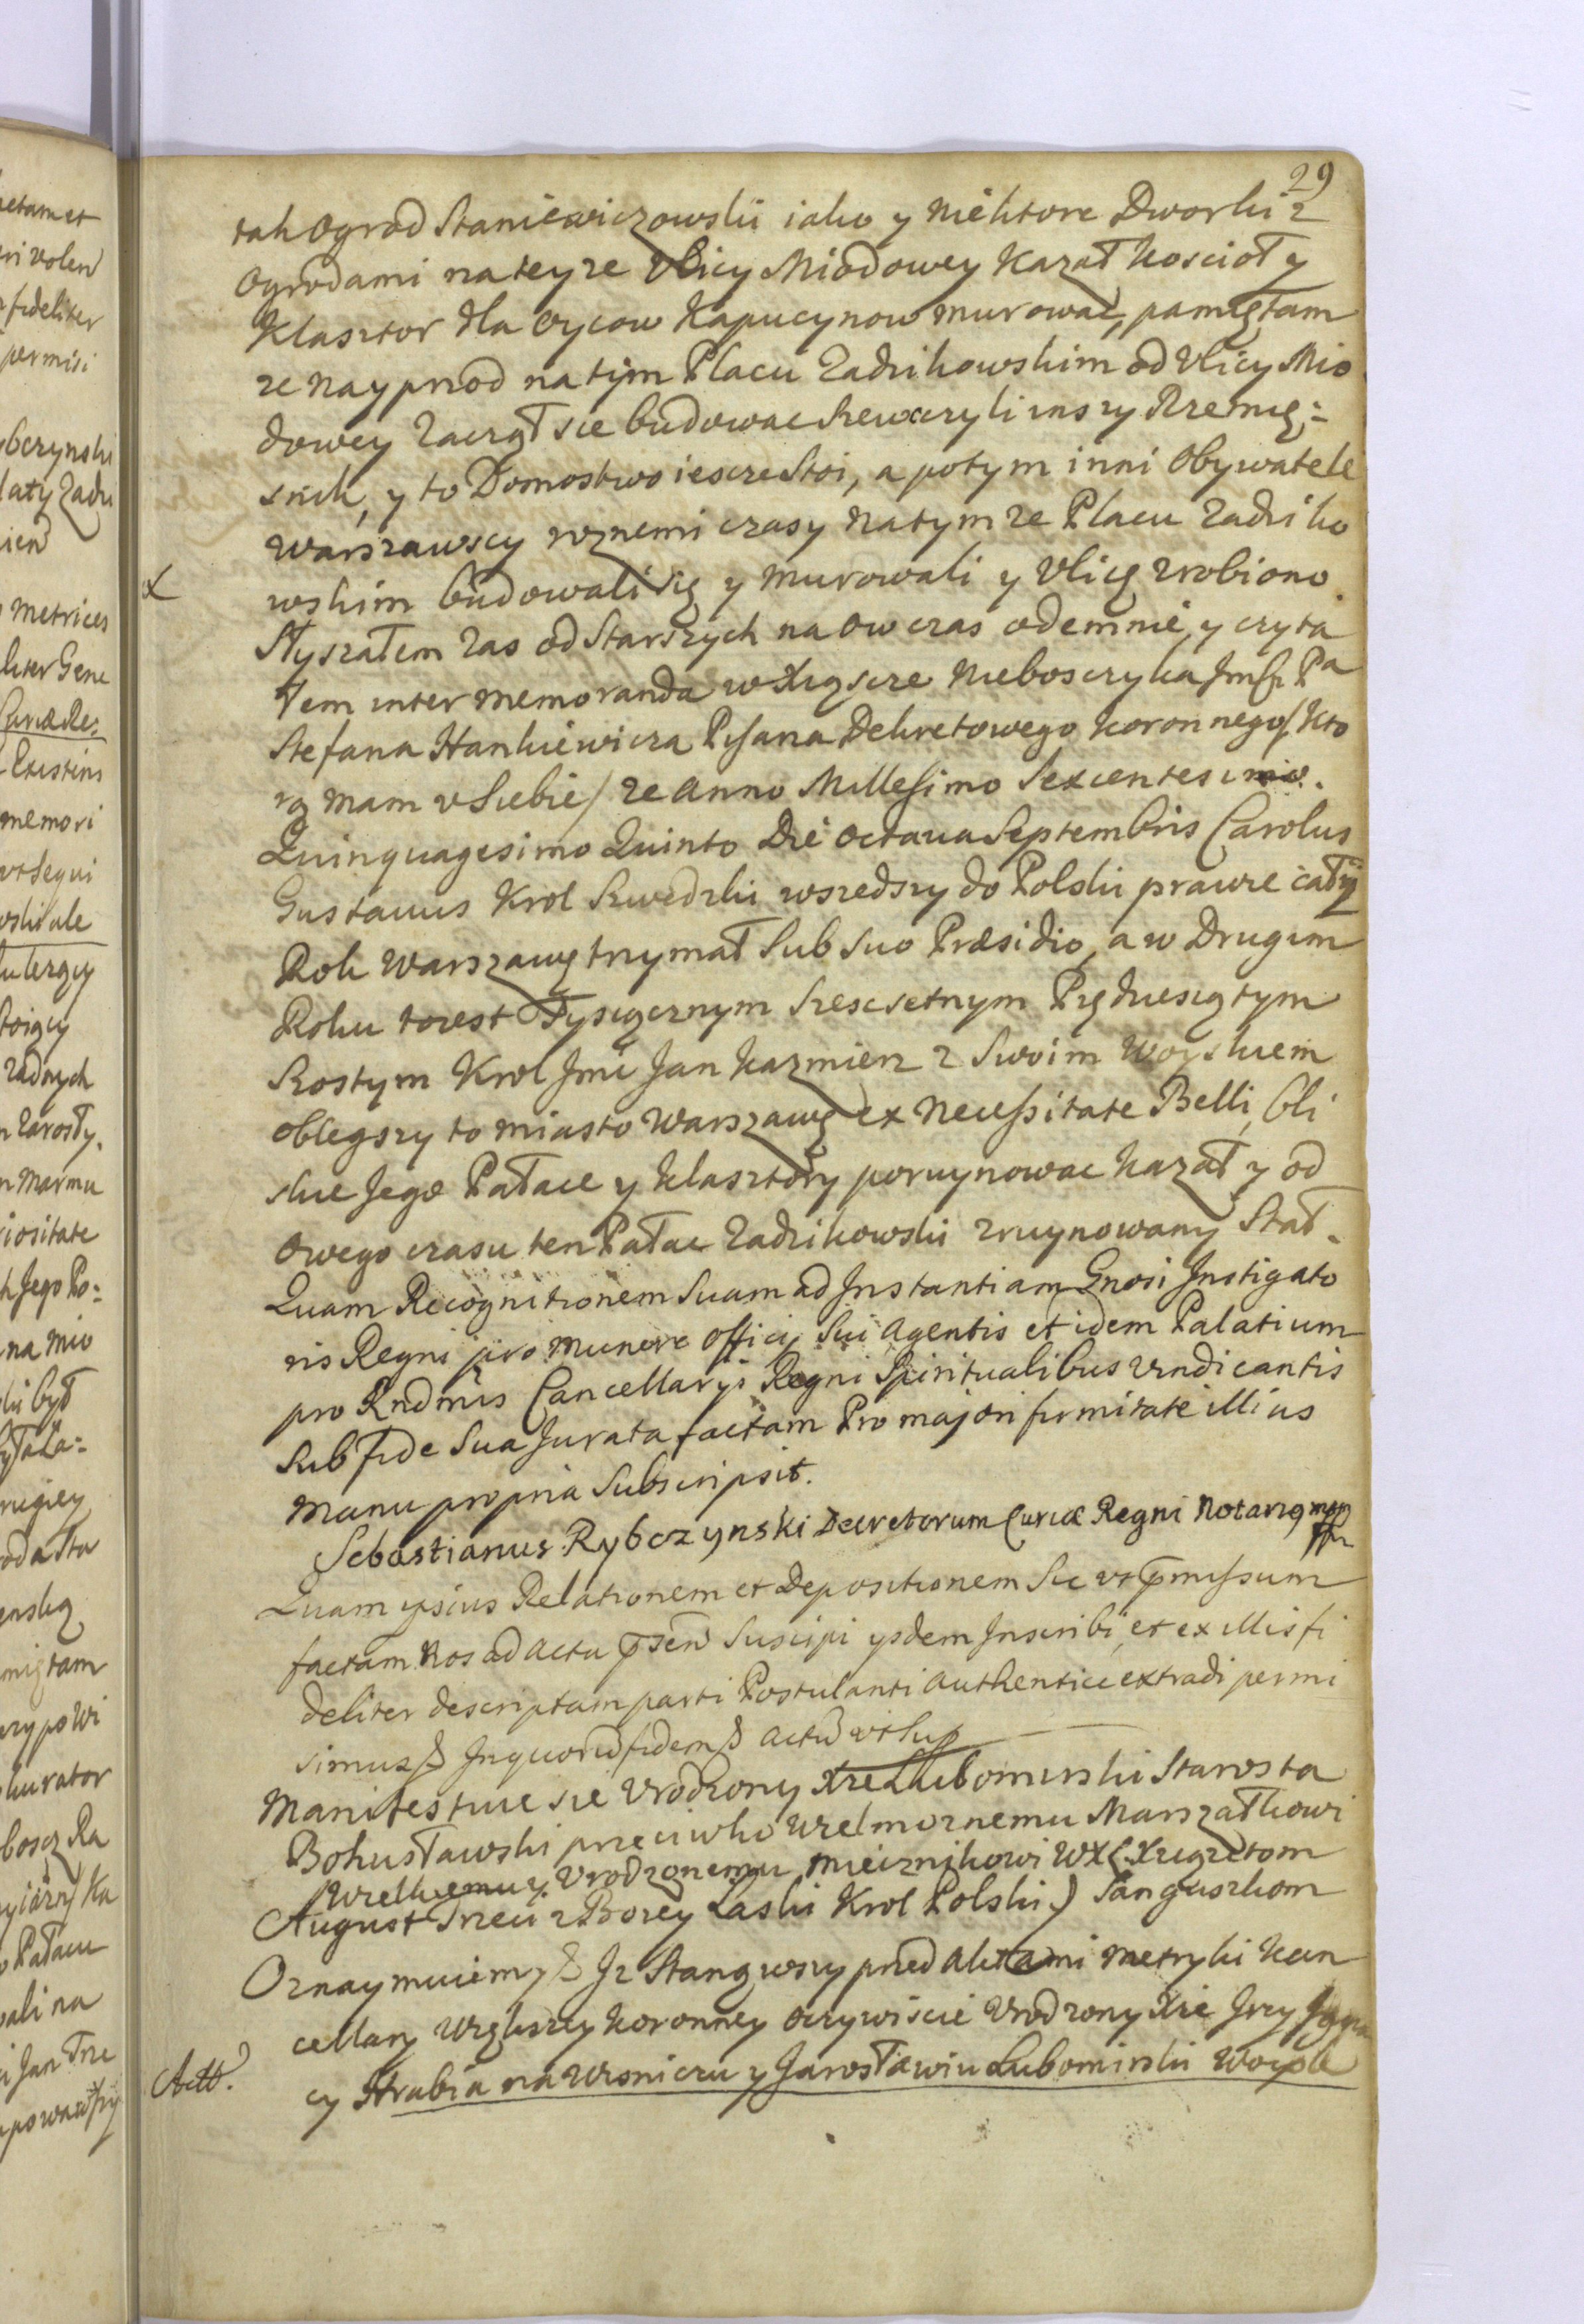 29
tak Ogrod Staniewiczowski iako y niektore Dworki z
Ogrodami na teyze Vlicy Miodowey Kazał Koscioł y
Klasztor dla Oycow Kapucynow murowac, pamiętam
ze nayprzod na tym Placu Zadzikowskim od Vlicy Mio
dowey Zaczął sie budowac Szewc czyli inszy Rzemię=
snik, y to Domostwo iescze Stoi, a potym inni Obywatele
Warszawscy roznemi czasy na tym ze Placu Zadziko
wskim budowali się y murowali y Vlicę zrobiono.
Słyszałem Zas od Starszych na ow czas odemnie, y czyta
łem inter memoranda w Xiąszce Nieboszczyka Jmsci Pa
Stefana Hankiewicza Pisarza Dekretowego Koronnego / Kto
rą mam v Siebie / ze Anno Millesimo Sexcentesimo.
Quinquagesimo Quinto Die octaua Septembris Carolus
Gustauus Krol Szwedzki wszedszy do Polski prawie cały
Rok Warszawę trzymał Sub Suo Præsidio, a w Drugim
Roku to iest Tysiącznym Szescsetnym Pięćdziesiątym
Szostym Krol Jmć Jan Kazmierz z Swoim Woyskiem
oblegszy to miasto Warszawę ex Necessitate Belli, bli
skie Jego Pałace y Klasztory poruynowac Kazał y od
Owego czasu ten Pałac Zadzikowski zruynowany Stał.
Quam Recognitionem Suam ad Jnstantiam Gnosi Jnstigato
ris Regni pro munere officij Sui Agentis et idem Palatium
pro Rndmis Cancellarijs Regni Spiritualibus vindicantis
Sub fide Sua Jurata factam Pro majori firmitate illius
manu propria Subscripsit.
Sebastianus Rybczynski Decretorum Curiæ Regni Notariq mpp
Quam ipsius Relationem et Depositionem Sic vt pmissum
factam Nos ad Acta psen Suscipi ysdem Jnscribi, et ex illis fi
deliter descriptam parti Postulanti Authentice extradi permi
simus & Jn quorū fidem & Actū vt Sup
Manifestuie sie Vrodzony Xże Lubomirski Starosta
Bohusławski przeciwko Wielmoznemu Marszałkowi
Wielkiemu y Vrodzonemu Miecznikowi WXL Xiążętom
August Trzeci z Bozey Łaski Krol Polski &) Sanguszkom
Oznaymuiemy & Jz Stanąwszy przed Aktami metryki Kan
cellary Większey Koronney oczywiscie Vrodzony Xże Jrzy Jgna
Actt. cy Hrabia na Wisniczu y Jarosławiu Lubomirski Woysk